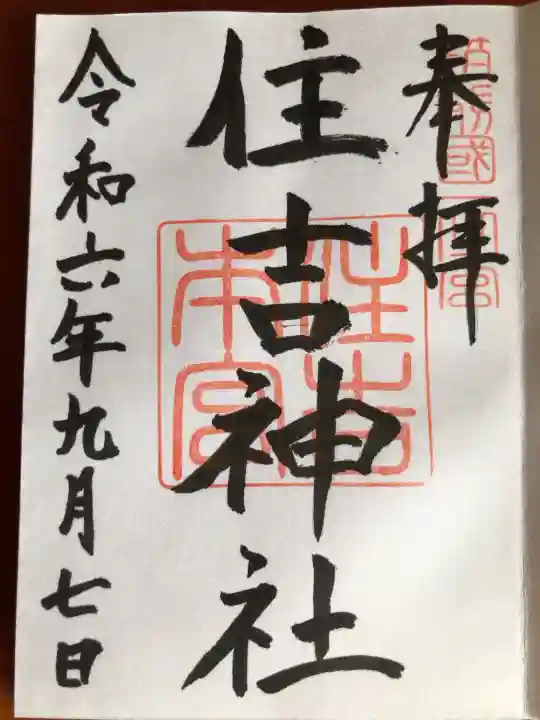 奉拝
國一宮
住吉神社
住吉
本宮
令和六年九月七日